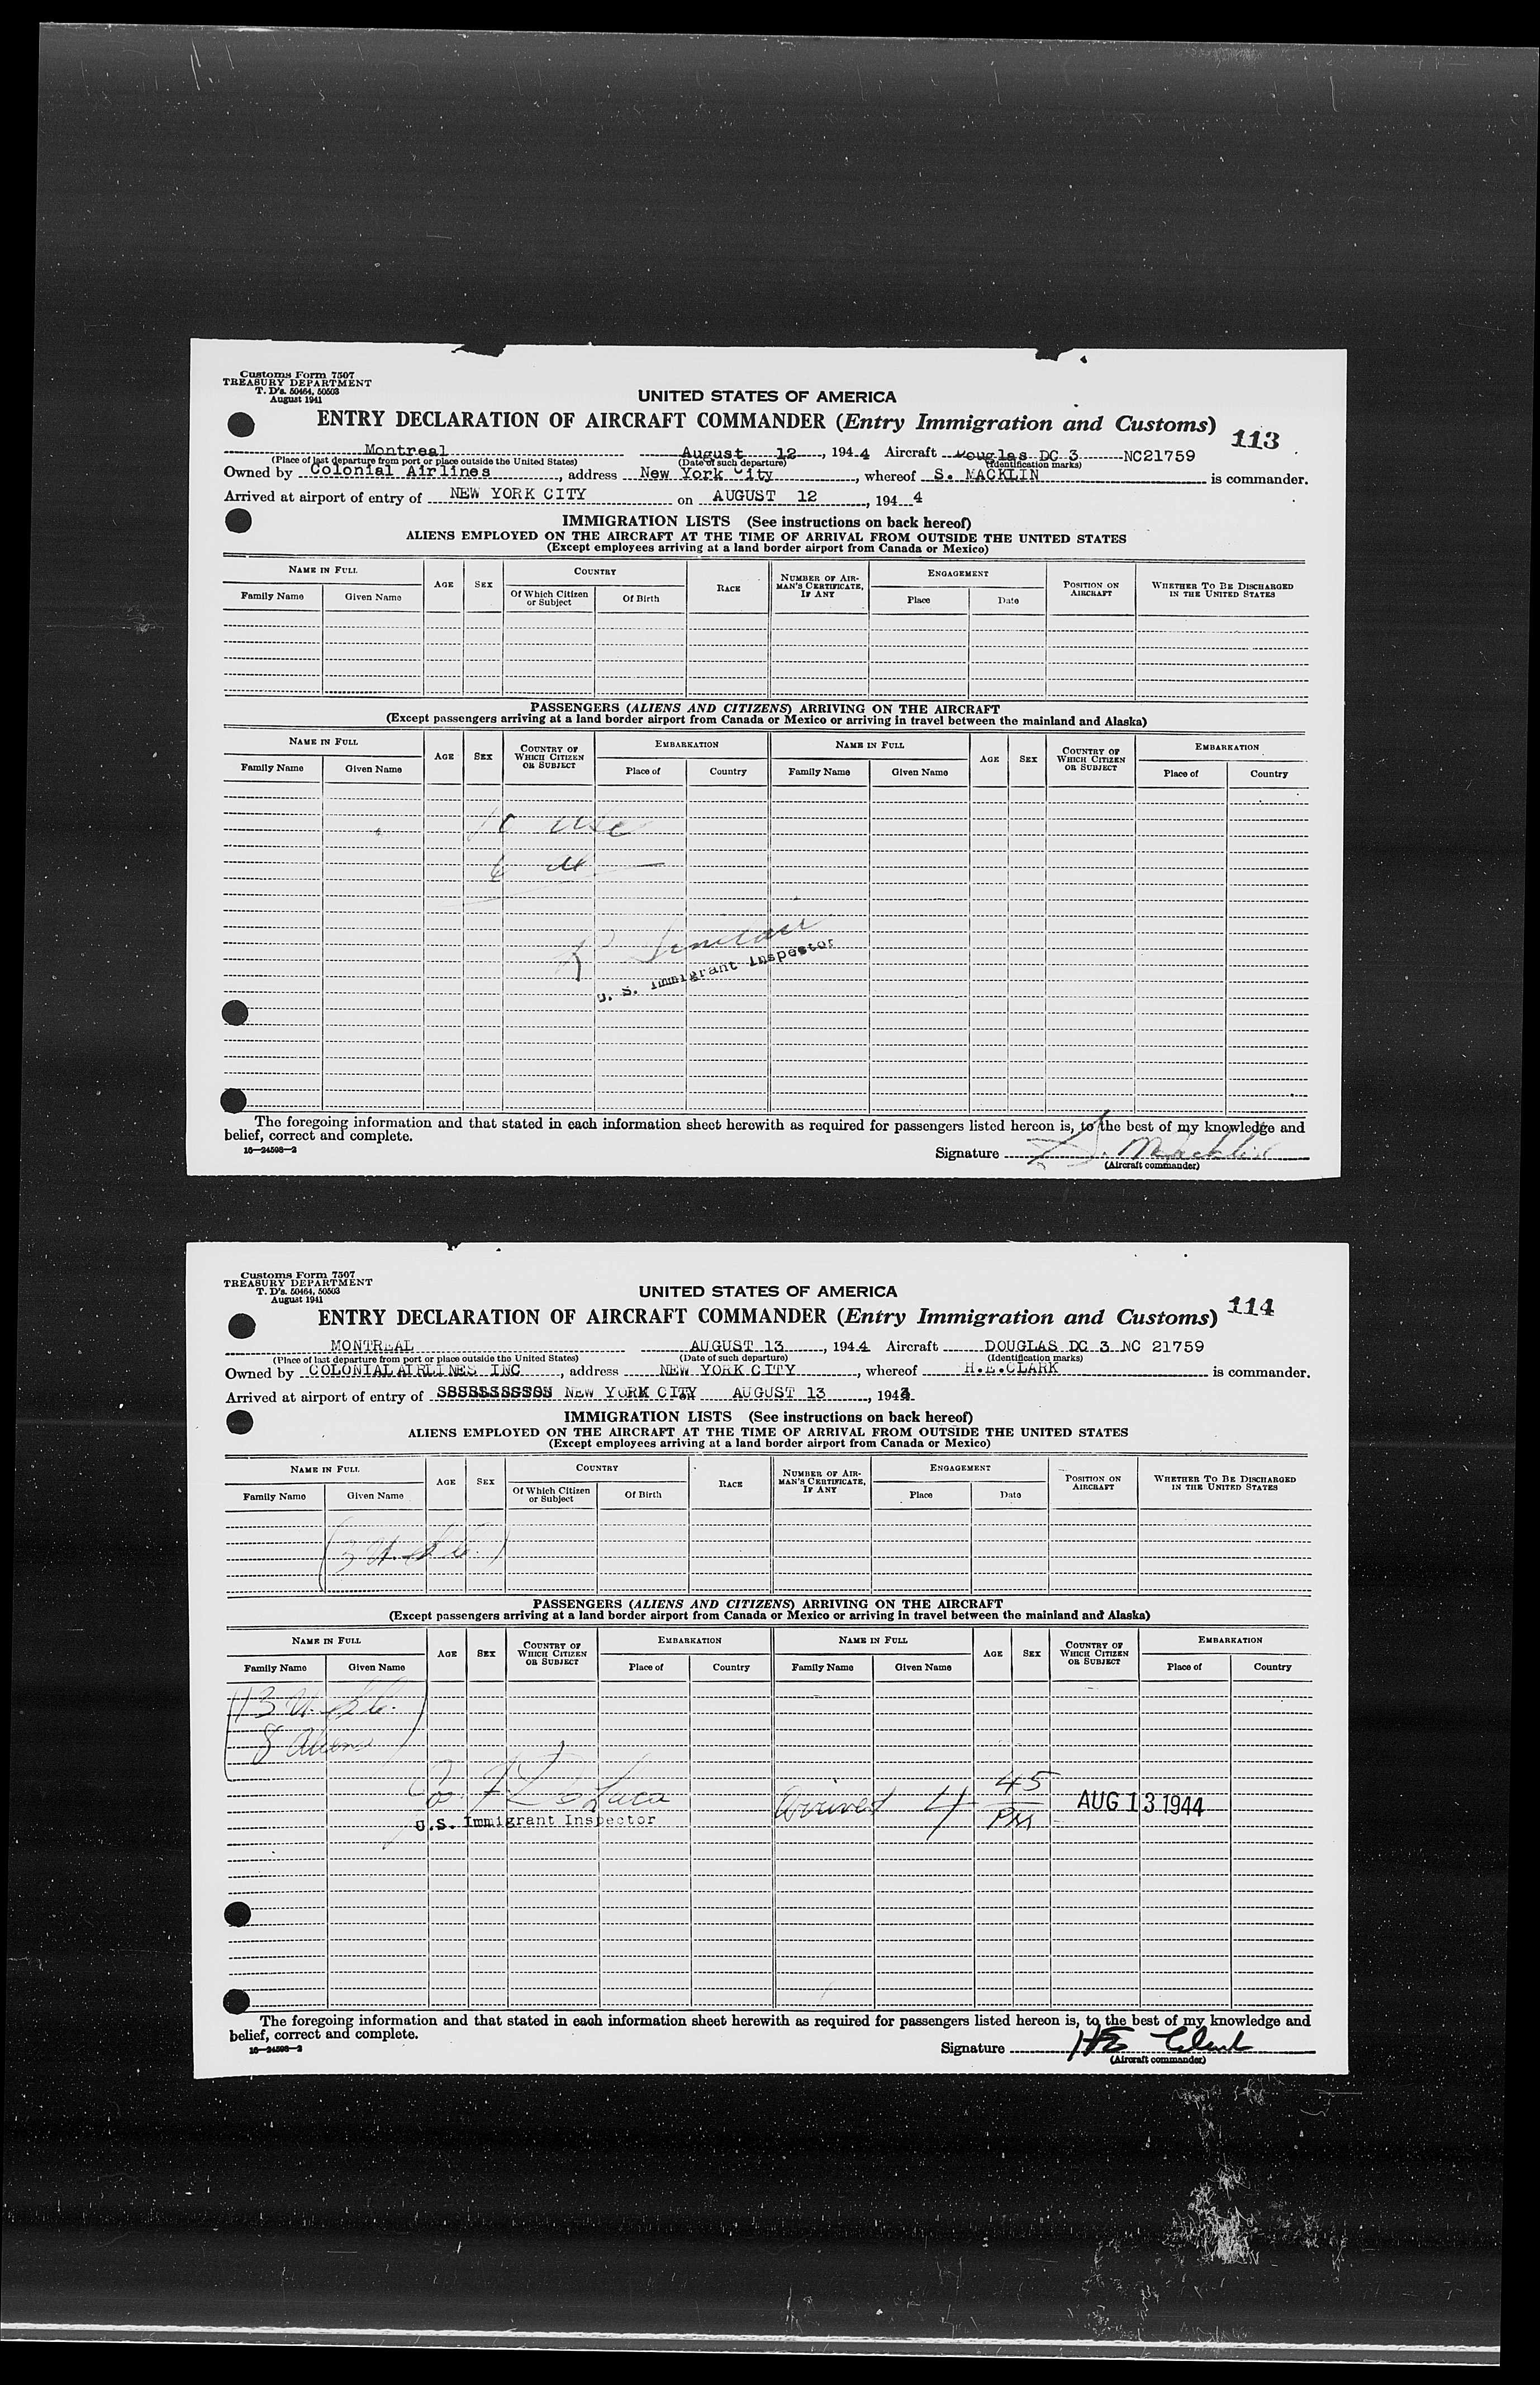 Customs Form 7507
TREASURY DEPARTMENT
T. D's. 50464, 50503
August 1941
UNITED STATES OF AMERICA
ENTRY DECLARATION OF AIRCRAFT COMMANDER (Entry Immigration and Customs) 113
Montreal August 12, 1944 Aircraft Douglas DC 3 NC21759
(Place of last departure from port or place outside the United States) (Date of such departure) (Identification marks)
Owned by Colonial Airlines, address New York City, whereof S. MACKLIN is commander.
Arrived at airport of entry of NEW YORK CITY on AUGUST 12, 194 4
IMMIGRATION LISTS (See instructions on back hereof)
ALIENS EMPLOYED ON THE AIRCRAFT AT THE TIME OF ARRIVAL FROM OUTSIDE THE UNITED STATES
(Except employees arriving at a land border airport from Canada or Mexico)
NAME IN FULL AGE SEX COUNTRY RACE NUMBER OF AIRMAN'S CERTIFICATE, IF ANY ENGAGEMENT POSITION ON AIRCRAFT WHETHER TO BE DISCHARGED IN THE UNITED STATES
Family Name Given Name Of Which Citizen or Subject Of Birth Place Date
PASSENGERS (ALIENS AND CITIZENS) ARRIVING ON THE AIRCRAFT
(Except passengers arriving at a land border airport from Canada or Mexico or arriving in travel between the mainland and Alaska)
NAME IN FULL AGE SEX COUNTRY OF WHICH CITIZEN OR SUBJECT EMBARKATION NAME IN FULL AGE SEX COUNTRY OF WHICH CITIZEN OR SUBJECT EMBARKATION
Family Name Given Name Place of Country Family Name Given Name Place of Country
R Sinclair
U. S. Immigrant Inspector
The foregoing information and that stated in each information sheet herewith as required for passengers listed hereon is, to the best of my knowledge and
belief, correct and complete.
16—24598—2
Signature S. Macklin
(Aircraft commander)
Customs Form 7507
TREASURY DEPARTMENT
T. D's. 50464, 50503
August 1941
UNITED STATES OF AMERICA
ENTRY DECLARATION OF AIRCRAFT COMMANDER (Entry Immigration and Customs) 114
MONTREAL AUGUST 13, 1944 Aircraft DOUGLAS DC 3 NC 21759
(Place of last departure from port or place outside the United States) (Date of such departure) (Identification marks)
Owned by COLONIAL AIRLINES INC, address NEW YORK CITY, whereof H.E.CLARK is commander.
Arrived at airport of entry of NEW YORK CITY on AUGUST 13, 194
IMMIGRATION LISTS (See instructions on back hereof)
ALIENS EMPLOYED ON THE AIRCRAFT AT THE TIME OF ARRIVAL FROM OUTSIDE THE UNITED STATES
(Except employees arriving at a land border airport from Canada or Mexico)
NAME IN FULL AGE SEX COUNTRY RACE NUMBER OF AIRMAN'S CERTIFICATE, IF ANY ENGAGEMENT POSITION ON AIRCRAFT WHETHER TO BE DISCHARGED IN THE UNITED STATES
Family Name Given Name Of Which Citizen or Subject Of Birth Place Date
(3 U.S.C.)
PASSENGERS (ALIENS AND CITIZENS) ARRIVING ON THE AIRCRAFT
(Except passengers arriving at a land border airport from Canada or Mexico or arriving in travel between the mainland and Alaska)
NAME IN FULL AGE SEX COUNTRY OF WHICH CITIZEN OR SUBJECT EMBARKATION NAME IN FULL AGE SEX COUNTRY OF WHICH CITIZEN OR SUBJECT EMBARKATION
Family Name Given Name Place of Country Family Name Given Name Place of Country
13 U.S.C.
8 Aliens
DeLuca Arrived 4 45 PM AUG 13 1944
U.S. Immigrant Inspector
The foregoing information and that stated in each information sheet herewith as required for passengers listed hereon is, to the best of my knowledge and
belief, correct and complete.
16—24598—2
Signature HE Clark
(Aircraft commander)